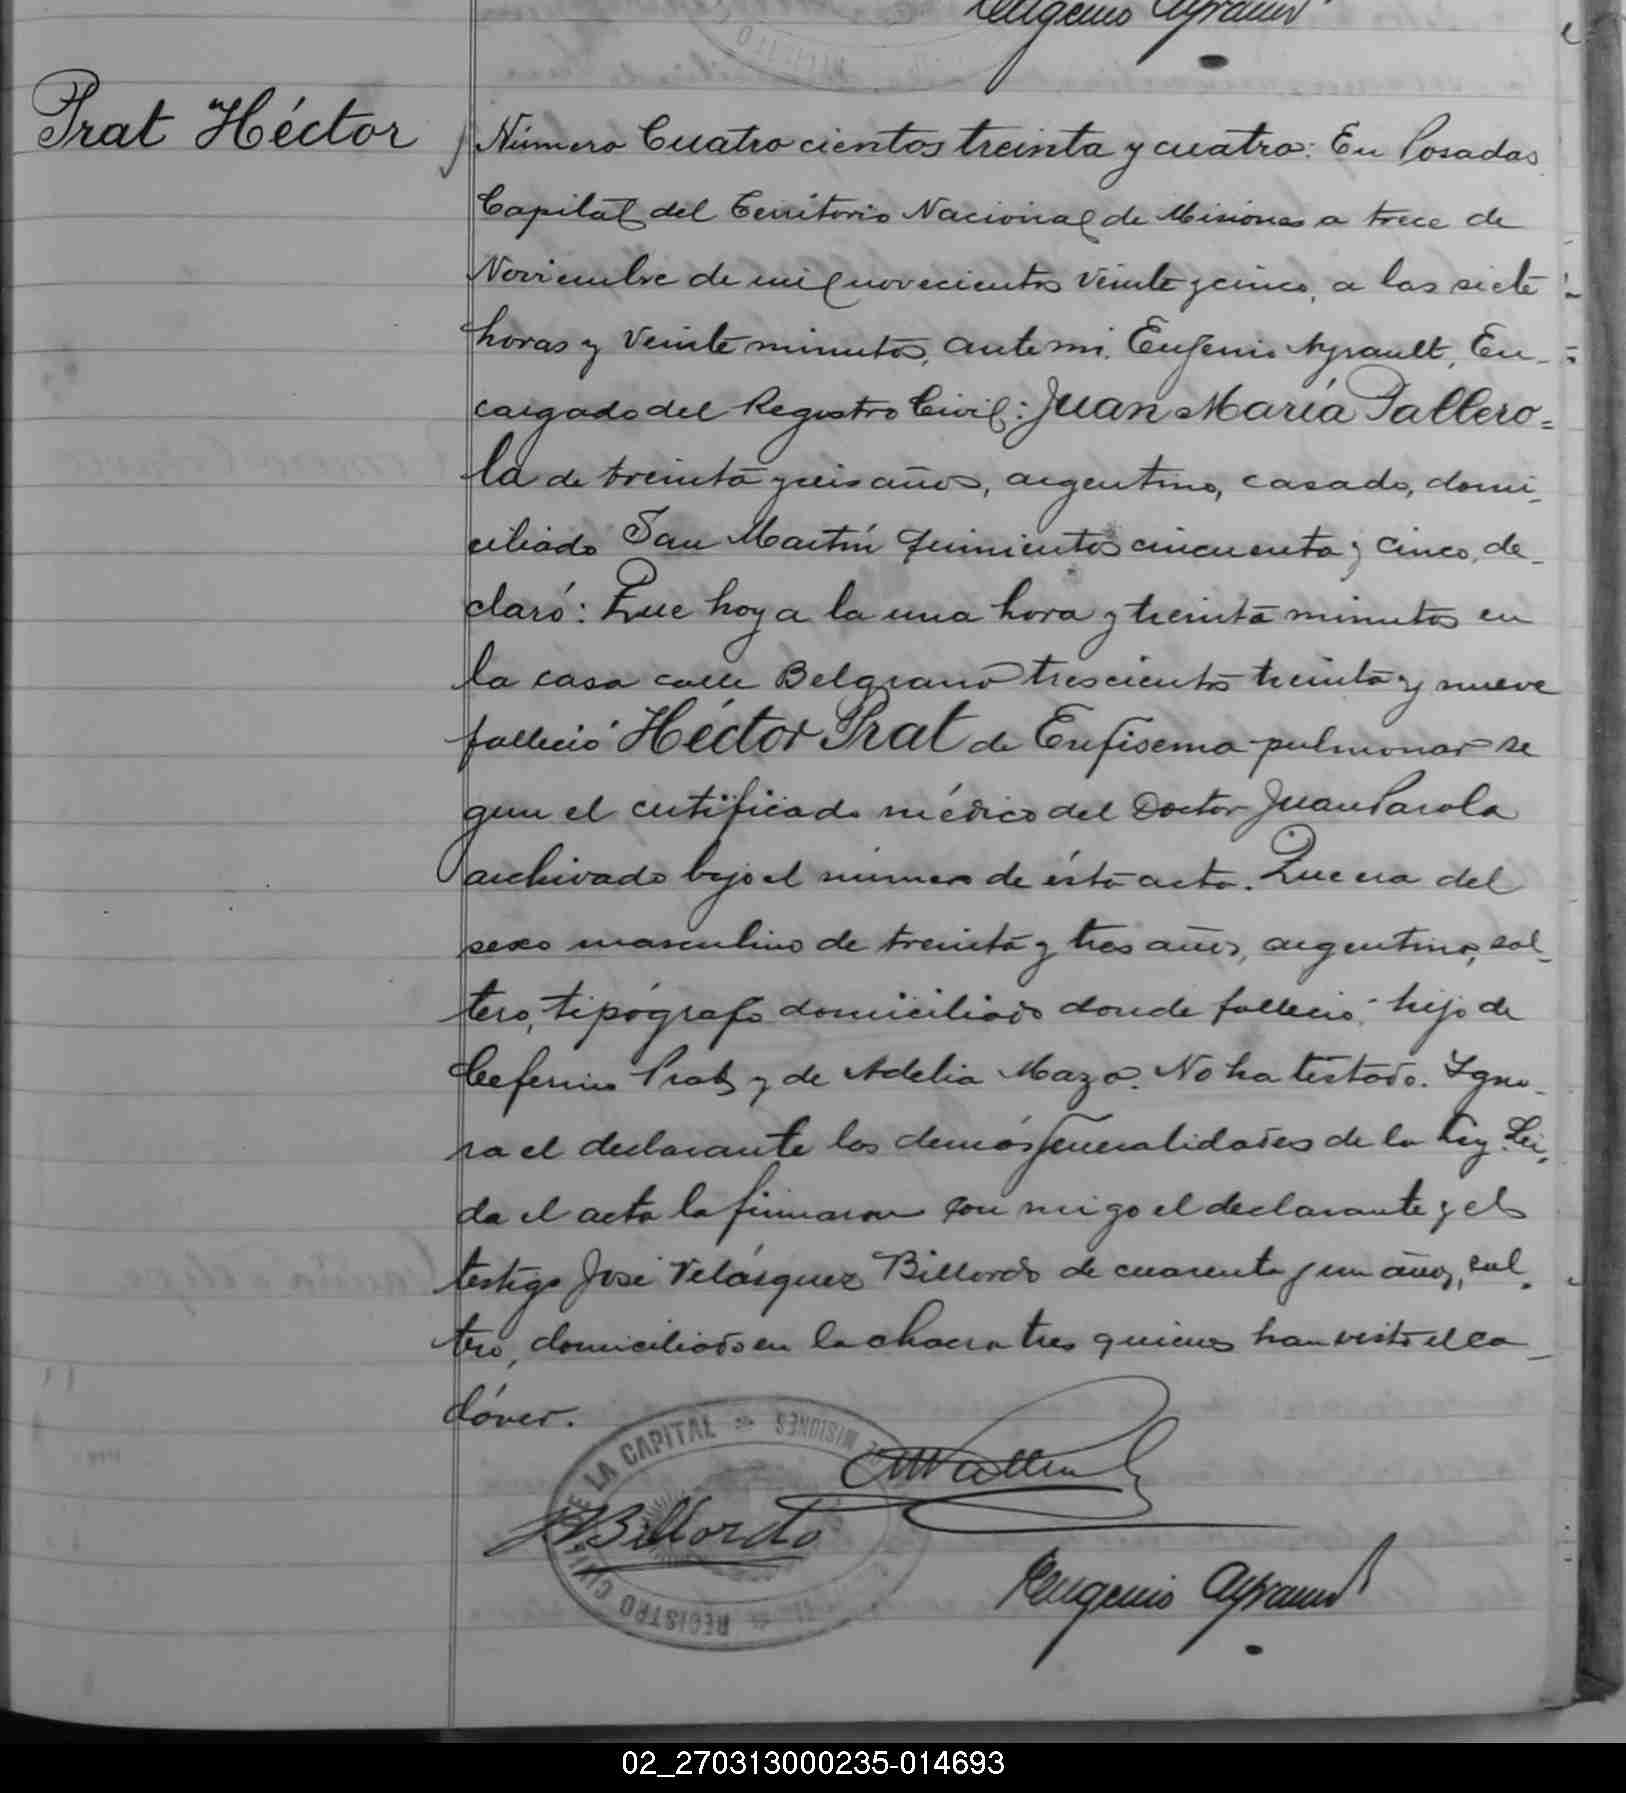 Eugenio Ayrault
Prat Héctor
Número Cuatrocientos treinta y cuatro: En Posadas
Capital del Territorio Nacional de Misiones a trece de
Noviembre de mil novecientos veinte y cinco, a las siete
horas y veinte minutos, ante mi, Eugenio Ayrault, En-
cargado del Registro Civil: Juan María Pallero=
la de treinta y seis años, argentino, casado, domi-
ciliado San Martín quinientos cincuenta y cinco, de-
claró: Que hoy a la una hora y treinta minutos en
la casa calle Belgrano trescientos treinta y nueve
falleció Héctor Prat de Enfisema pulmonar se
gun el certificado médico del Doctor Juan Parola
archivado bajo el número de ésta acta. Que era del
sexo masculino de treinta y tres años, argentino, sol-
tero, tipógrafo domiciliado donde falleció, hijo de
Ceferino Prat y de Adelia Mazo. No ha testado. Igno-
ra el declarante las demás generalidades de la Ley. Lei-
da el acta la firmaron conmigo el declarante y el
testigo José Velásquez Billordo de cuarenta y un años, sol-
tero, domiciliado en la chacra tres quienes han visto el ca-
dáver.
REGISTRO CIVIL DE LA CAPITAL MISIONES
Billordo
Eugenio Ayrault
02_270313000235-014693